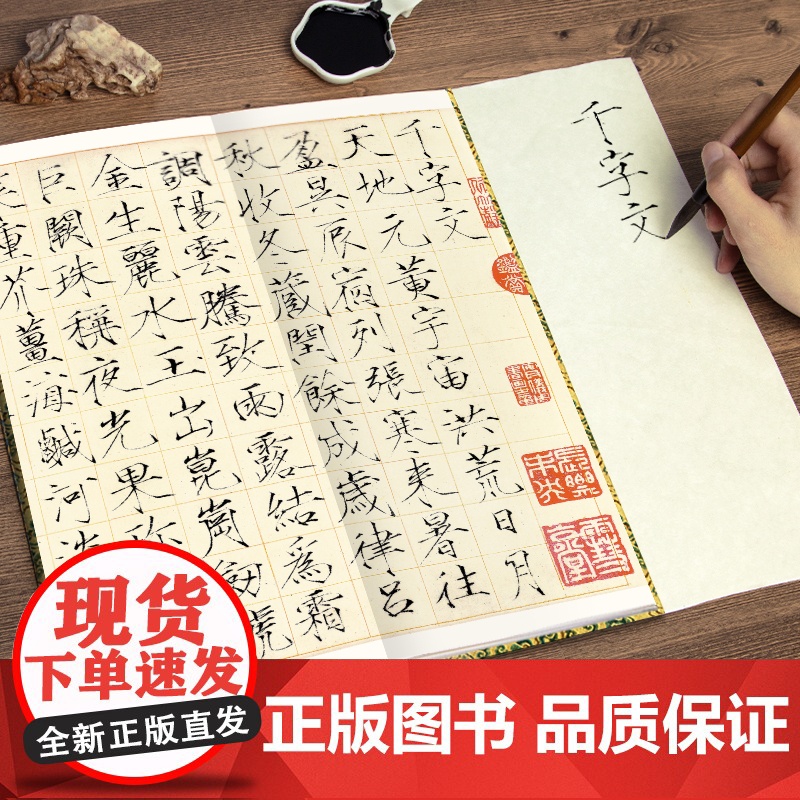 千字文
千字文
天地元黄宇宙洪荒日月
盈昃辰宿列張寒来暑往
秋收冬藏閏餘成歲律吕
調陽雲騰致雨露結為霜
金生麗水玉出崑崗劒號
巨闕珠稱夜光果珎
重芥薑海鹹河淡
现货
下单速发
全新正版直发
正版图书 品质保证